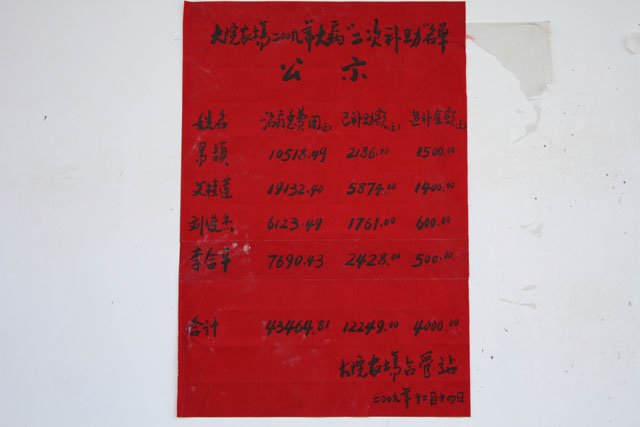 大院农场二00九年大病"二次补助"名单
公示
姓名 治疗总费用(元) 已补助额(元) 进补金额(元)
易领 10518.49 2186.00 1500.00
吴桂莲 19132.40 5874.00 1400.00
刘俊杰 6123.49 1761.00 600.00
李合年 7690.43 2428.00 500.00
合计 43464.81 12249.00 4000.00
大院农场合管站
二00九年十二月十四日